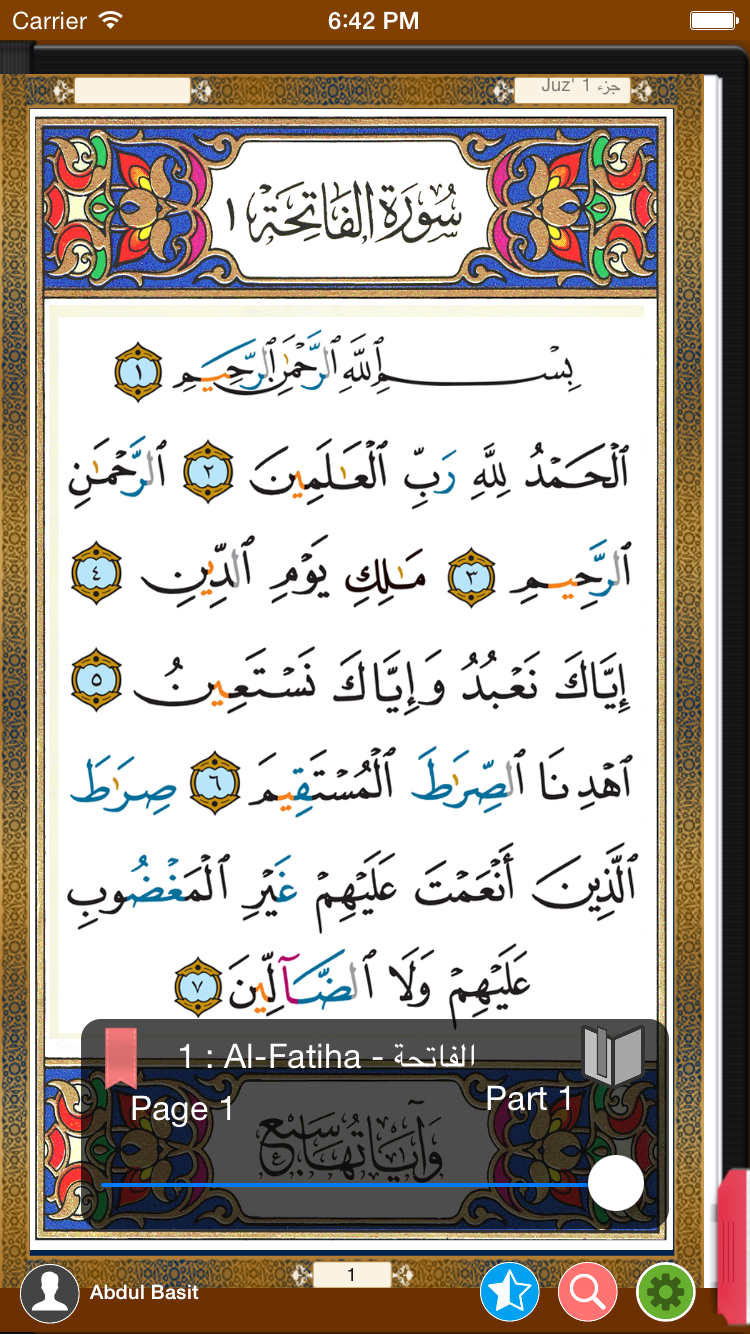 Carrier 6:42 PM
Juz' 1 جزء
سُورَةُ الفَاتِحَةِ ١
بِسْمِ ٱللَّهِ ٱلرَّحْمَٰنِ ٱلرَّحِيمِ ١
ٱلْحَمْدُ لِلَّهِ رَبِّ ٱلْعَٰلَمِينَ ٢ ٱلرَّحْمَٰنِ
ٱلرَّحِيمِ ٣ مَٰلِكِ يَوْمِ ٱلدِّينِ ٤
إِيَّاكَ نَعْبُدُ وَإِيَّاكَ نَسْتَعِينُ ٥
ٱهْدِنَا ٱلصِّرَٰطَ ٱلْمُسْتَقِيمَ ٦ صِرَٰطَ
ٱلَّذِينَ أَنْعَمْتَ عَلَيْهِمْ غَيْرِ ٱلْمَغْضُوبِ
عَلَيْهِمْ وَلَا ٱلضَّآلِّينَ ٧
1 : Al-Fatiha - الفاتحة
Page 1 Part 1
وَآيَاتُهَا سَبْع
1
Abdul Basit